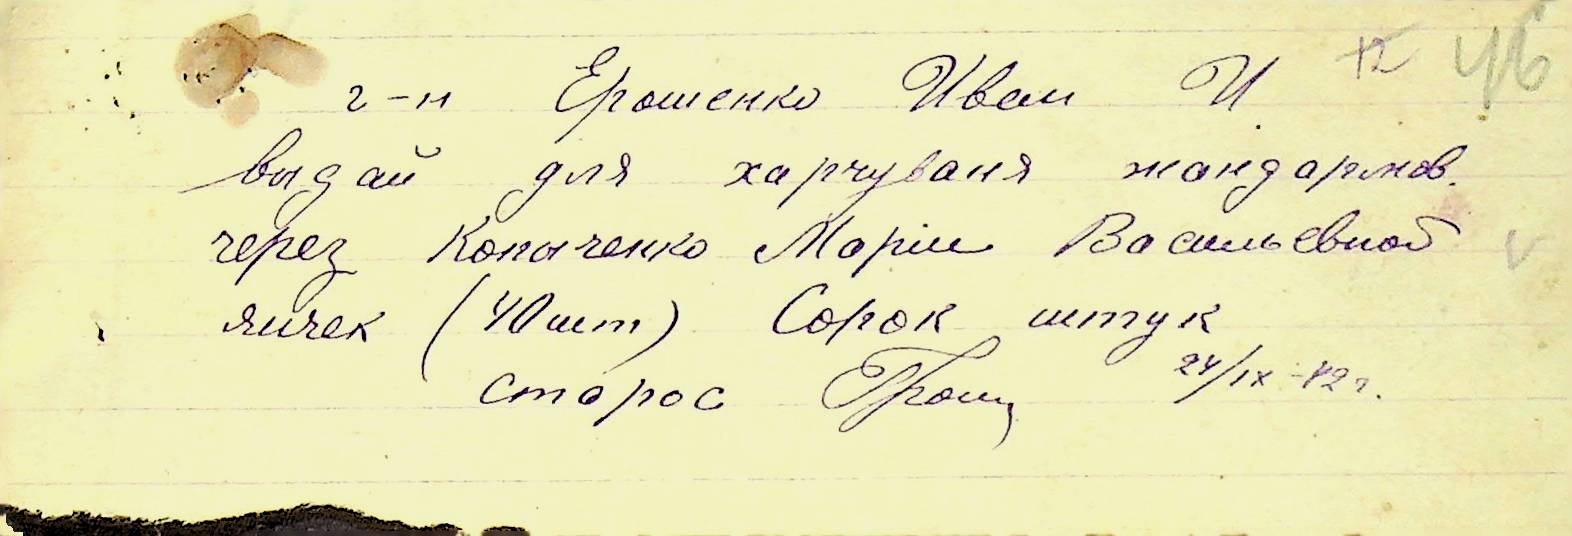 12 46
г-н Ерошенко Иван И.
выдай для харчуваня жандармов.
через Копыченко Марии Васильевной
яичек (40 шт) Сорок штук
старос 24/IX-42 г.